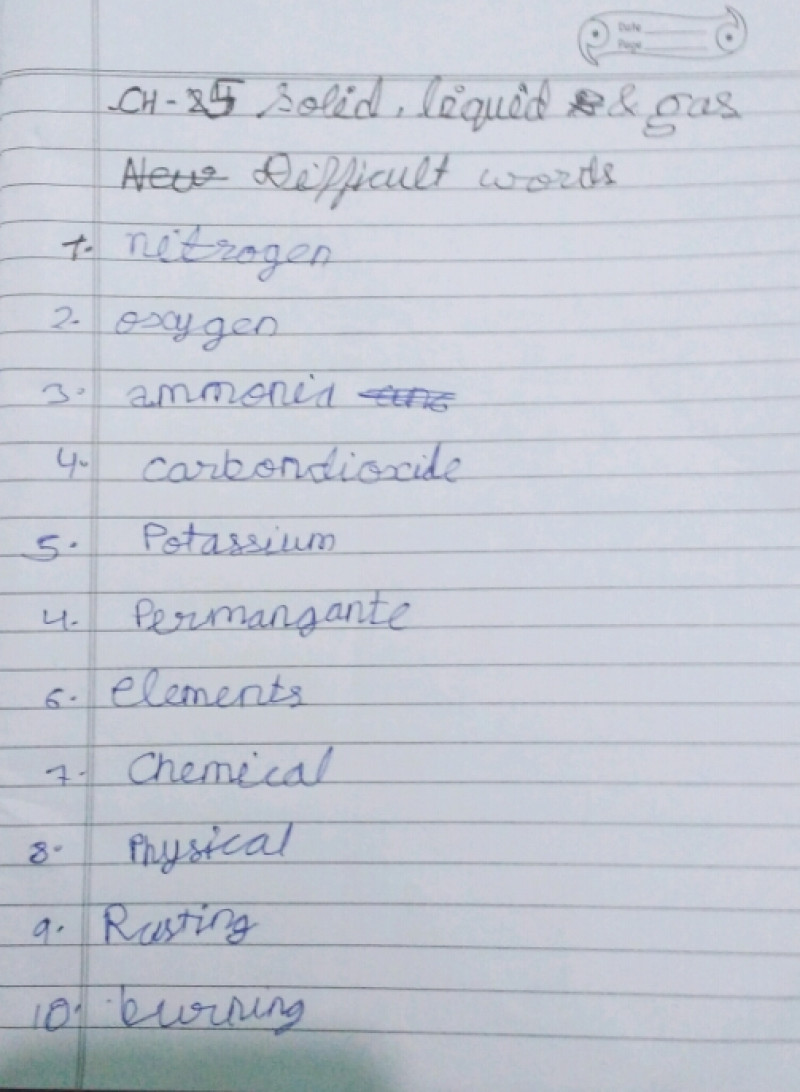 Date
Page
CH-5 Solid, liquid & gas
New Difficult words
1. nitrogen
2. oxygen
3. ammonia
4. carbondioxide
5. Potassium
4. Permangante
6. elements
7. Chemical
8. Physical
9. Rusting
10. burning